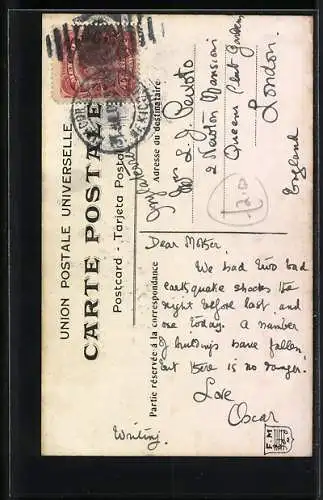 UNION POSTALE UNIVERSELLE
CARTE POSTALE
Postcard - Tarjeta Postal
Partie réservée à la correspondance
Adresse ou destinataire
Mrs L. J.
2 Newton Mansions
Queens Club Gardens
London.
England
Dear Mother
We had two bad
earthquake shocks the
night before last and
one today. A number
of buildings have fallen
but there is no danger.
Love
Oscar
Writing.
F.M